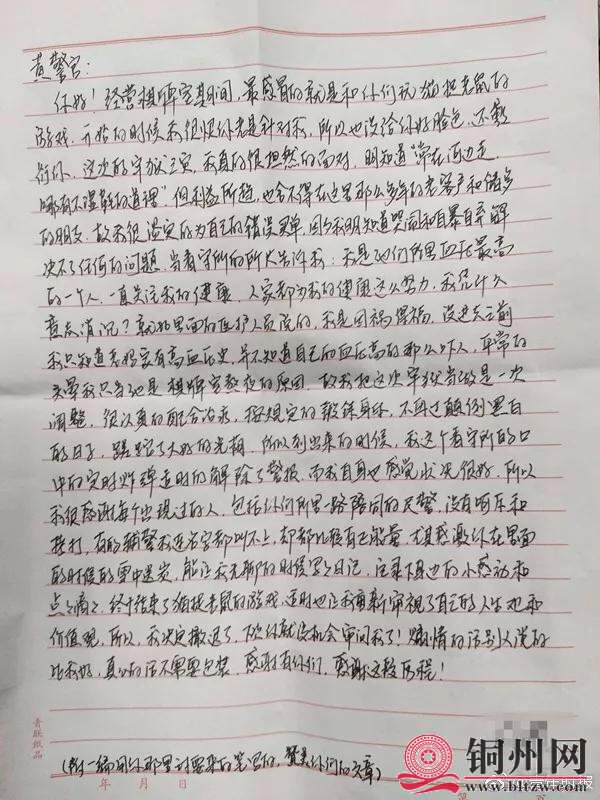 黄警官：
你好！经营棋牌室期间，最感冒的就是和你们玩猫捉老鼠的
游戏，开始的时候我很恨你老是针对我，所以也没给你好脸色，还敷
衍你，这次的牢狱之灾，我真的很坦然的面对，明知道“常在河边走，
哪有不湿鞋的道理”但利益所趋，也舍不得在这里那么多年的老客户和诸多
的朋友，故我很适实的为自己的错误买单，因为我明知道哭闹和自暴自弃解
决不了任何的问题，当看守所的所长告诉我：我是他们所里血压最高
的一个人，一直关注我的健康，人家都为我的健康这么努力，我凭什么
意志消沉？就如里面的医护人员说的，我是因祸得福，没进去之前
我只知道老妈家有高血压史，并不知道自己的血压高的那么吓人，平常的
头晕我只当她是棋牌室熬夜的原因，故我把这次牢狱当做是一次
调整，很认真的配合治疗，按规定的锻炼身体，不再过颠倒黑白
的日子，蹉跎了大好的光阴，所以到出来的时候，我这个看守所的口
中的定时炸弹走时的解除了警报，而我自身也感觉状况很好，所以
我很感谢每个出现过的人，包括你们所里一路陪同的民警，没有喝斥和
挨打，有的辅警我连名字都叫不上，却都比较有正能量，尤其感激你在里面
的时候的雪中送炭，能让我无聊的时候写写日记，记录下身边的小感动和
点点滴滴，终于结束了猫捉老鼠的游戏，这时也让我重新审视了自己的人生观和
价值观，所以，我决定撤退了，下次你就没机会审问我了！煽情的话别人说的
比我好，真心的话不需要包装，感谢有你们，感谢这段历程！
青联纸品
(附一编用你那里讨要来的笔写的，赞美你们的文章)
年 月 日
铜州网
www.bltzw.com